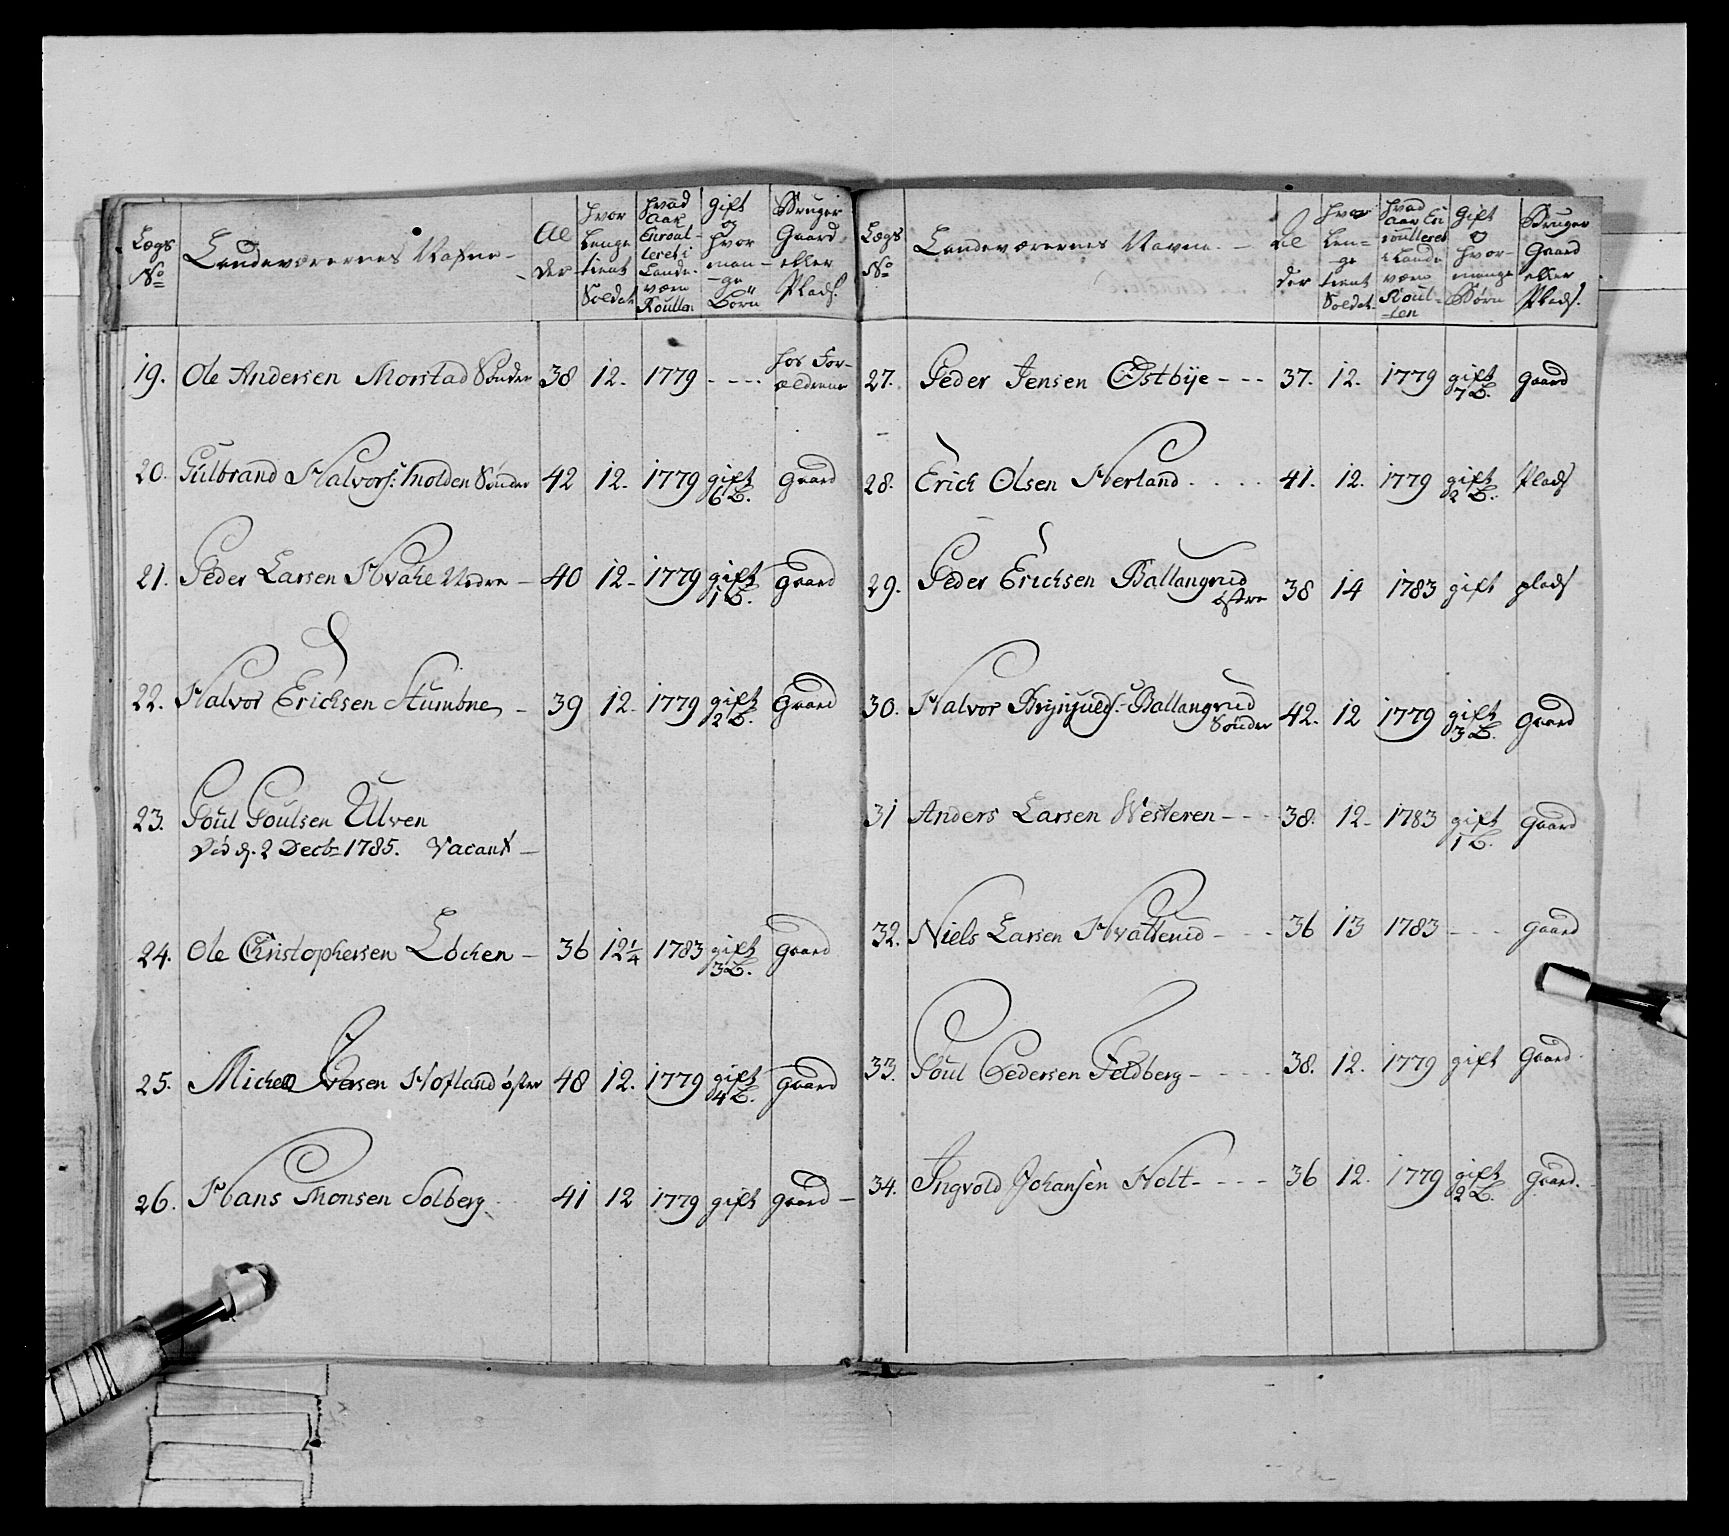 Lægs No
Landeværernes Nafne
Al der
hvor lenge tient Soldat
hvad Aar Enroulleret i Landeværn Roullen
gift og hvor mange Børn
Bruger Gaard eller Plads.
19. Ole Andersen Morstad Sønder 38 12. 1779 - - - - hos Forældrene
20. Gulbrand Halvors: Molden Sønder 42 12. 1779 gift 6 B. gaard
21. Peder Larsen Hvahe Nedre - 40 12 - 1779 gift 1 B. gaard
22. Halvor Erichsen Stumbne - 39 12. 1779 gift 2 B. gaard
23. Poul Poulsen Ulven
Död d. 2 Decb: 1785. Vacant -
24. Ole Christophersen Löchen - 36 12 1/4 1783 gift 3 B. gaard
25. Michel Iversen Hofland öster 48 12. 1779 gift 4 B. gaard
26. Hans Monsen Solberg. 41 12 1779 gift gaard -
Lægs No
Landeværernes Navne. -
Al der
hvor lenge tient Soldat
hvad Aar Enroulleret i Landeværn Roullen
Gift og hvor mange Børn
Bruger Gaard eller Plads.
27. Peder Jensen Østbye - - - 37. 12. 1779 gift 7 B. gaard
28. Erich Olsen Herland . . . . 41. 12. 1779 gift 2 B. Plads
29. Peder Erichsen Ballangrud østre 38 14 1783 gift plads
30. Halvor Brynjuls: Ballangrud Sönder 42. 12 1779 gift 3 B. gaard
31 Anders Larsen Westeren - - - 38. 12 - 1783 gift 1 B. gaard
32. Niels Larsen Hvatterud - - - 36 13 1783 - - - gaard
33. Poul Pedersen Feldberg - - - - 38. 12. 1779 gift gaard.
34. Ingvold Johansen Holt - - - - 36 12. 1779 gift 2 B. gaard.